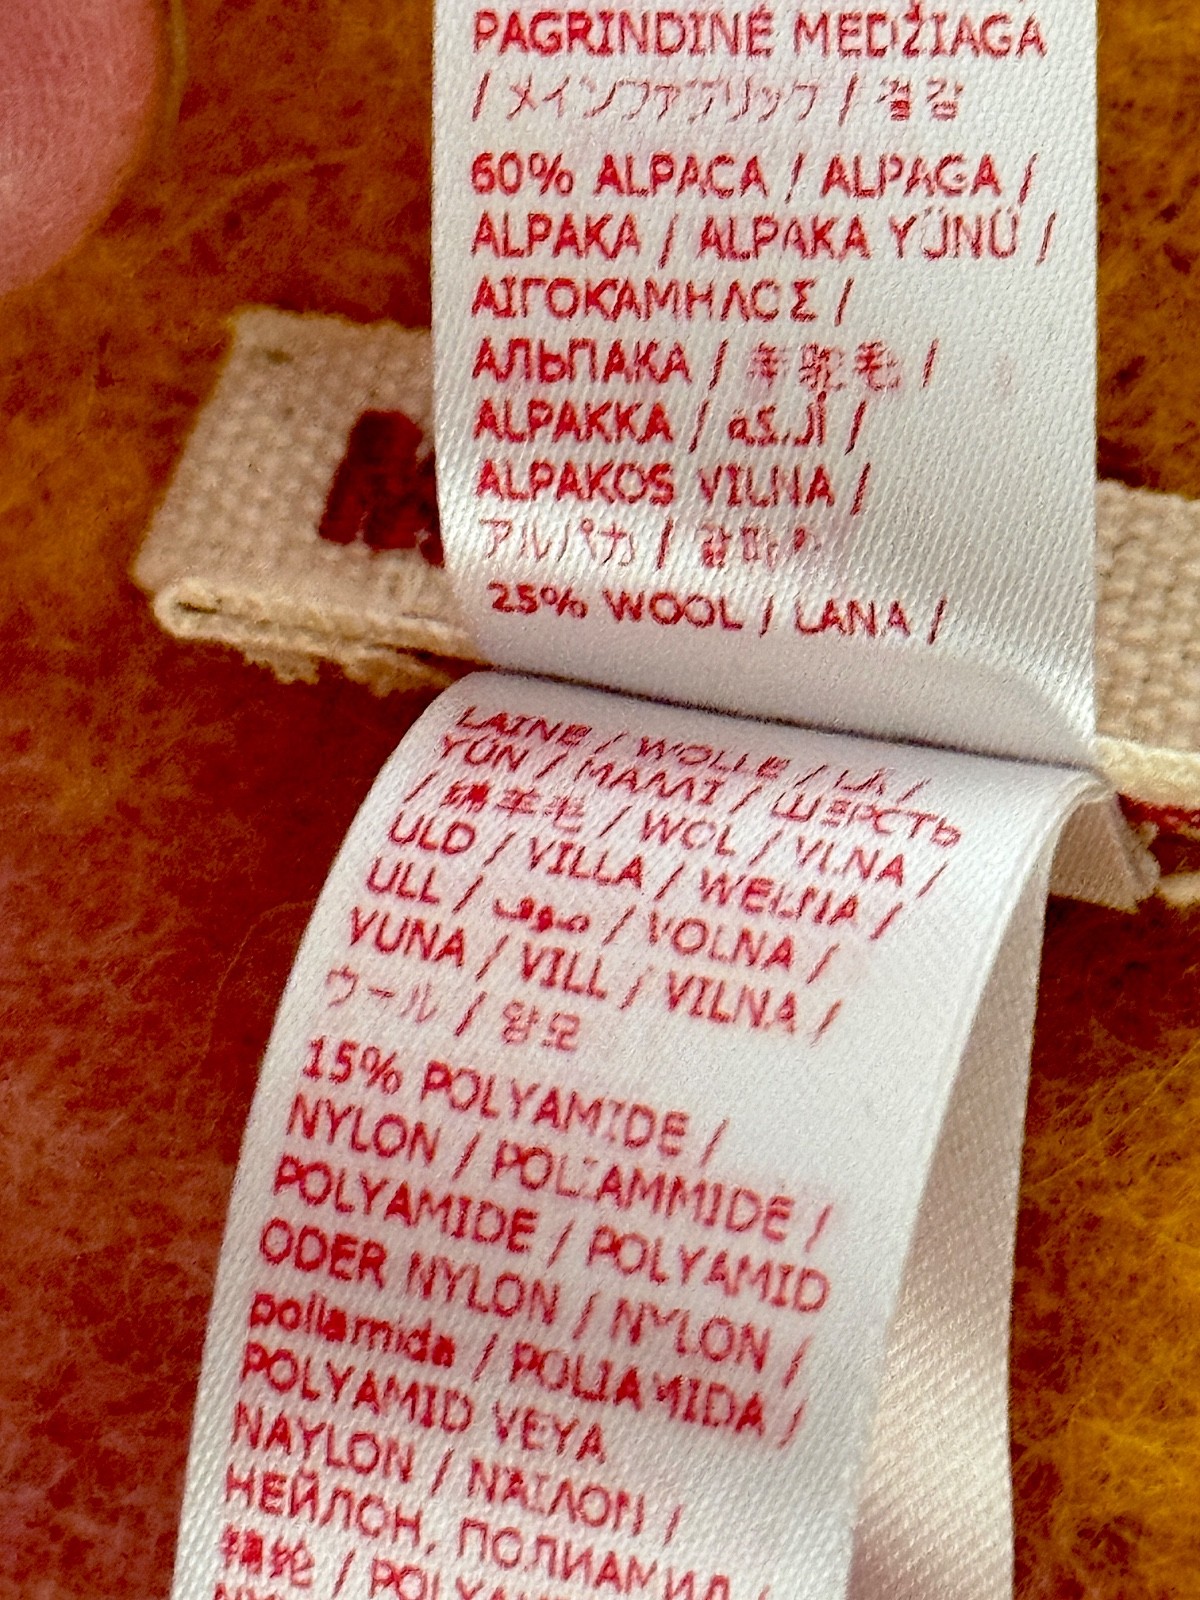 PAGRINDINĖ MEDŽIAGA
/ メインファブリック / 겉감
60% ALPACA / ALPAGA /
ALPAKA / ALPAKA YÜNÜ /
ΑΙΓΟΚΑΜΗΛΟΣ /
АЛЬПАКА / 羊驼毛 /
ALPAKKA / ألبكة /
ALPAKOS VILNA /
アルパカ / 알파카
25% WOOL / LANA /
LAINE / WOLLE / LÃ /
YÜN / ΜΑΛΛΙ / ШЕРСТЬ
/ 绵羊毛 / WOL / VLNA /
ULD / VILLA / WEŁNA /
ULL / صوف / VOLNA /
VUNA / VILL / VILNA /
ウール / 양모
15% POLYAMIDE /
NYLON / POLIAMMIDE /
POLYAMIDE / POLYAMID
ODER NYLON / NYLON /
poliamida / POLIAMIDA /
POLYAMID VEYA
NAYLON / ΝΑΪΛΟΝ /
НЕЙЛОН, ПОЛИАМИД /
锦纶 /